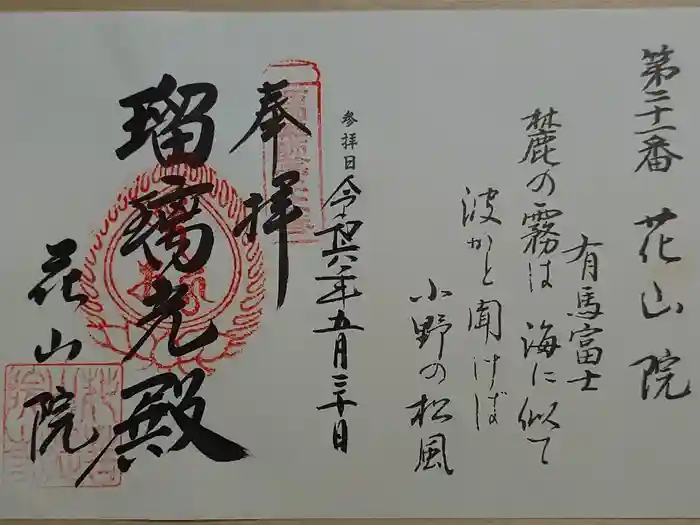 第二十一番 花山院
有馬富士
麓の霧は 海に似て
波かと聞けば
小野の松風
参拝日
令和六年五月三十日
奉拝
瑠璃光殿
花山院